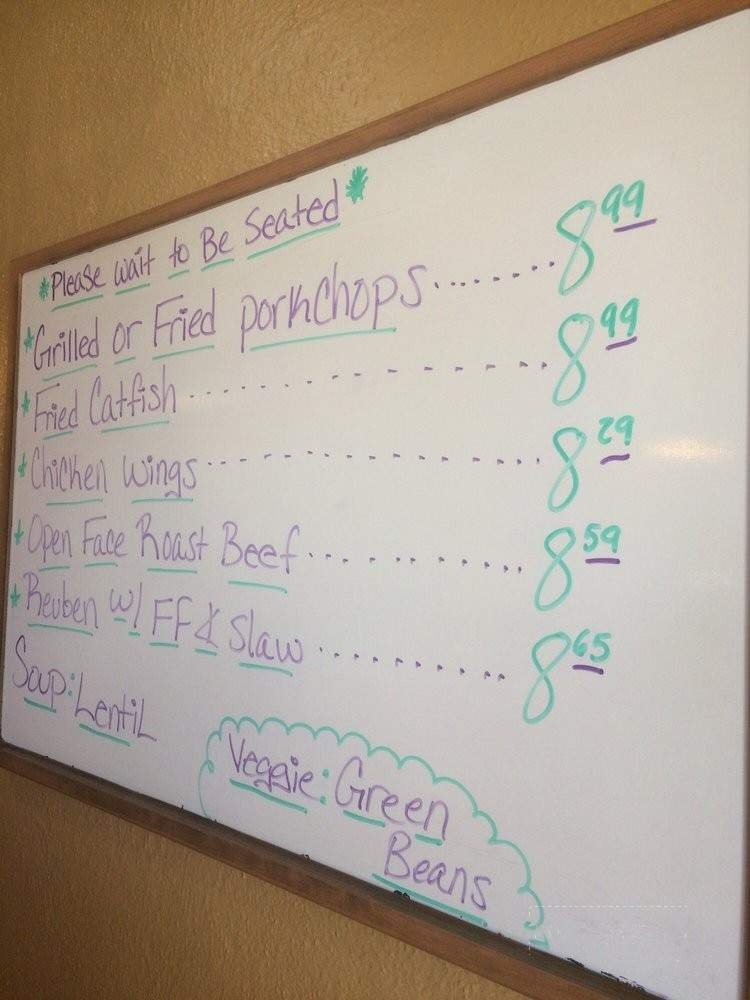 *Please wait to Be Seated*
*Grilled or Fried porkchops....... 8 99
*Fried Catfish............. 8 99
*Chicken wings............. 8 29
*Open Face Roast Beef........... 8 59
*Reuben w/ FF & Slaw.......... 8 65
Soup: Lentil
Veggie: Green
Beans